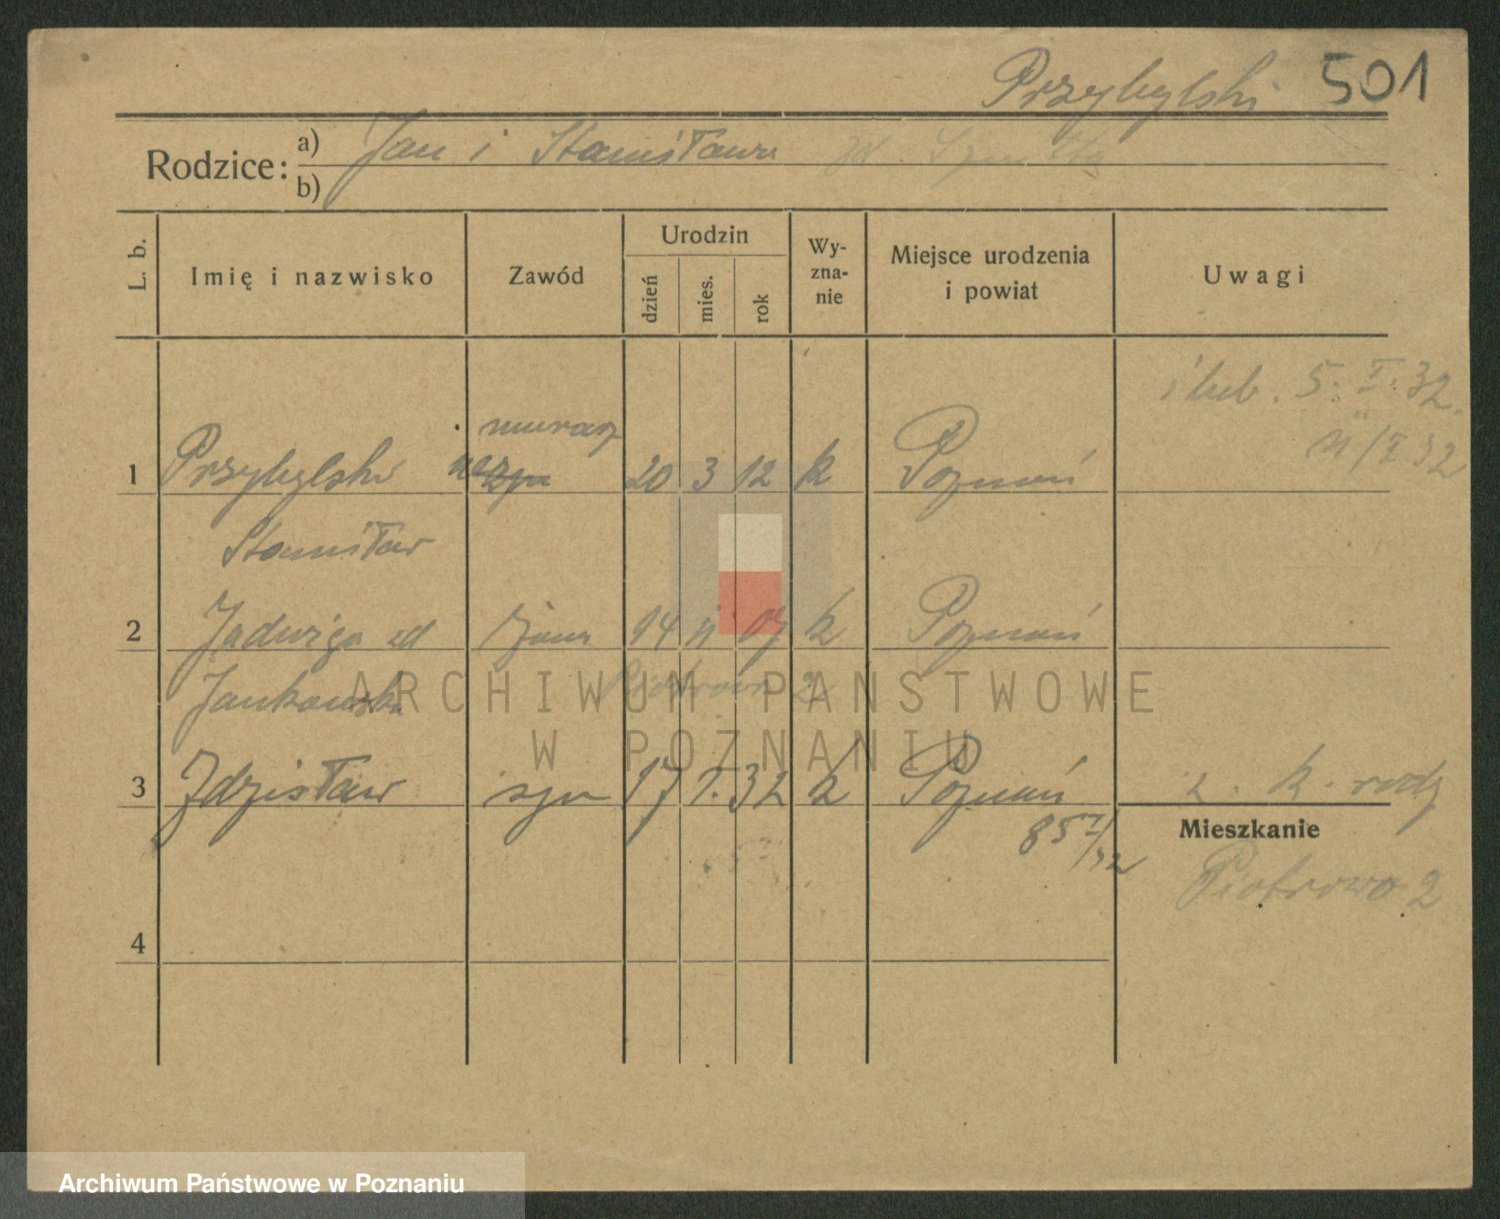 Przybylski 501
Rodzice: a) Jan i Stanisława
b)
L. b. Imię i nazwisko Zawód Urodzin dzień mies. rok Wy-zna-nie Miejsce urodzenia i powiat Uwagi
ślub. 5. I. 32
murarz
1 Przybylski 20 3 12 k Poznań
Stanisław
2 Jadwiga zd żona 14 11 07 k Poznań
Jankowska Piotrowo 2
3 Zdzisław syn 17 7. 32 k Poznań z. k. rodz
85 I/32
Mieszkanie
Piotrowo 2
4
ARCHIWUM PAŃSTWOWE
W POZNANIU
Archiwum Państwowe w Poznaniu